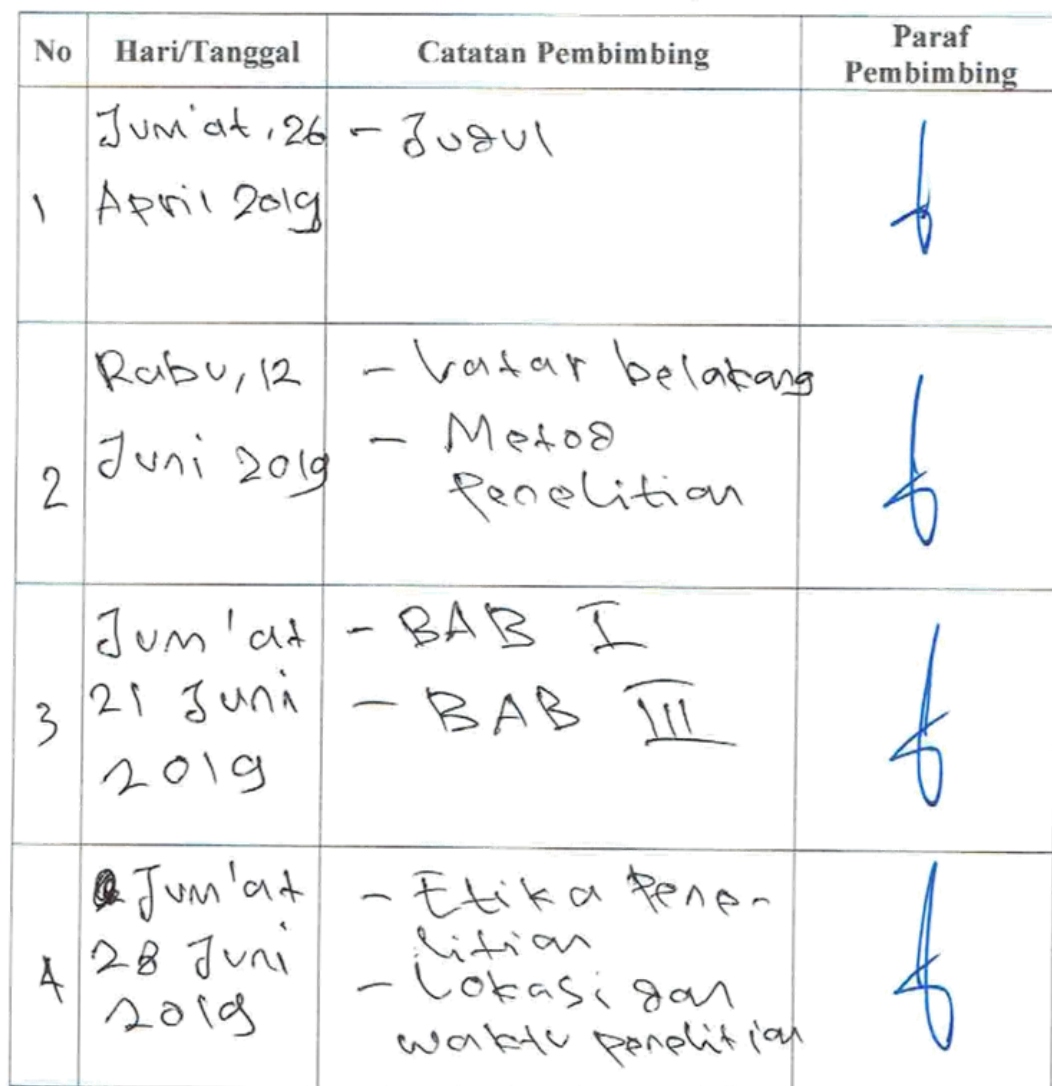 No Hari/Tanggal Catatan Pembimbing Paraf Pembimbing
1
Jum'at, 26
April 2019
- Judul
2
Rabu, 12
Juni 2019
- Latar belakang
- Metod
Penelitian
3
Jum'at
21 Juni
2019
- BAB I
- BAB III
4
Jum'at
28 Juni
2019
- Etika Pene-
litian
- Lokasi dan
waktu penelitian